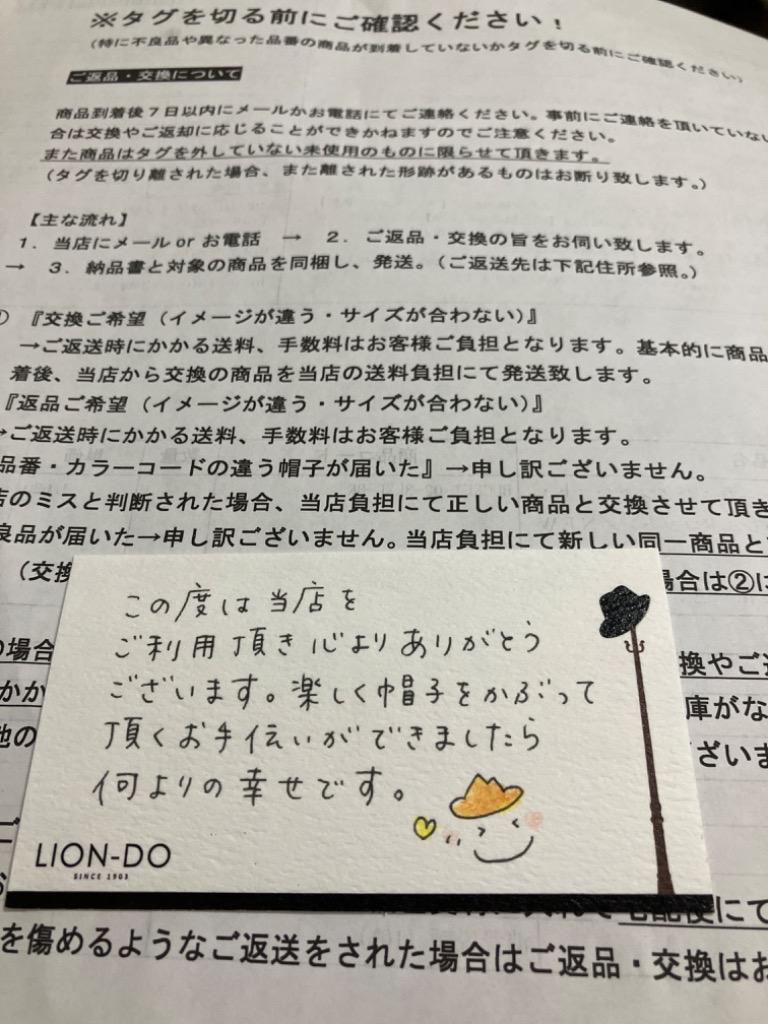 ※タグを切る前にご確認ください！
（特に不良品や異なった品番の商品が到着していないかタグを切る前にご確認ください）
ご返品・交換について
商品到着後７日以内にメールかお電話にてご連絡ください。事前にご連絡を頂いていない
合は交換やご返却に応じることができかねますのでご注意ください。
また商品はタグを外していない未使用のものに限らせて頂きます。
（タグを切り離された場合、また離された形跡があるものはお断り致します。）
【主な流れ】
１．当店にメール or お電話　→　２．ご返品・交換の旨をお伺い致します。
→　３．納品書と対象の商品を同梱し、発送。（ご返送先は下記住所参照。）
『交換ご希望（イメージが違う・サイズが合わない）』
→ご返送時にかかる送料、手数料はお客様ご負担となります。基本的に商品
着後、当店から交換の商品を当店の送料負担にて発送致します。
『返品ご希望（イメージが違う・サイズが合わない）』
→ご返送時にかかる送料、手数料はお客様ご負担となります。
品番・カラーコードの違う帽子が届いた』→申し訳ございません。
店のミスと判断された場合、当店負担にて正しい商品と交換させて頂き
良品が届いた→申し訳ございません。当店負担にて新しい同一商品と
（交換
場合は②に
の場合
換やご返
かか
庫がな
他の
ざいま
この度は当店を
ご利用頂き心よりありがとう
ございます。楽しく帽子をかぶって
頂くお手伝いができましたら
何よりの幸せです。
LION-DO
SINCE 1903
宅配便にて
を傷めるようなご返送をされた場合はご返品・交換はお